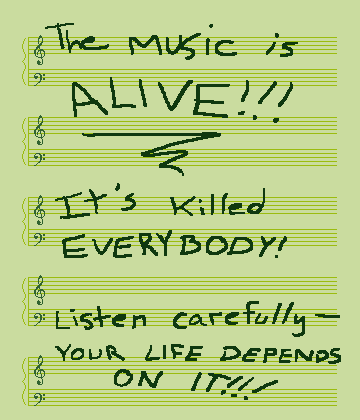 The music is
ALIVE!!!
It's killed
EVERYBODY!
Listen carefully—
YOUR LIFE DEPENDS
ON IT!!!